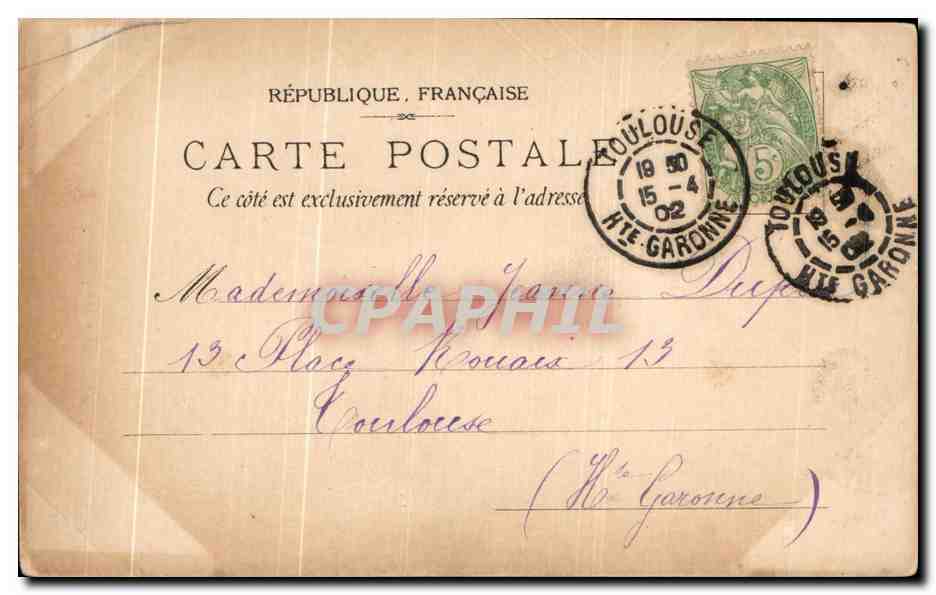 RÉPUBLIQUE FRANÇAISE
CARTE POSTALE
Ce côté est exclusivement réservé à l'adresse
TOULOUSE
19 30
15 - 4
02
HTE GARONNE
5c
TOULOUSE
15 - 4
02
HTE GARONNE
CPAPHIL
Mademoiselle Jeanne
13 Place Rouaix 13
Toulouse
(Hte Garonne)